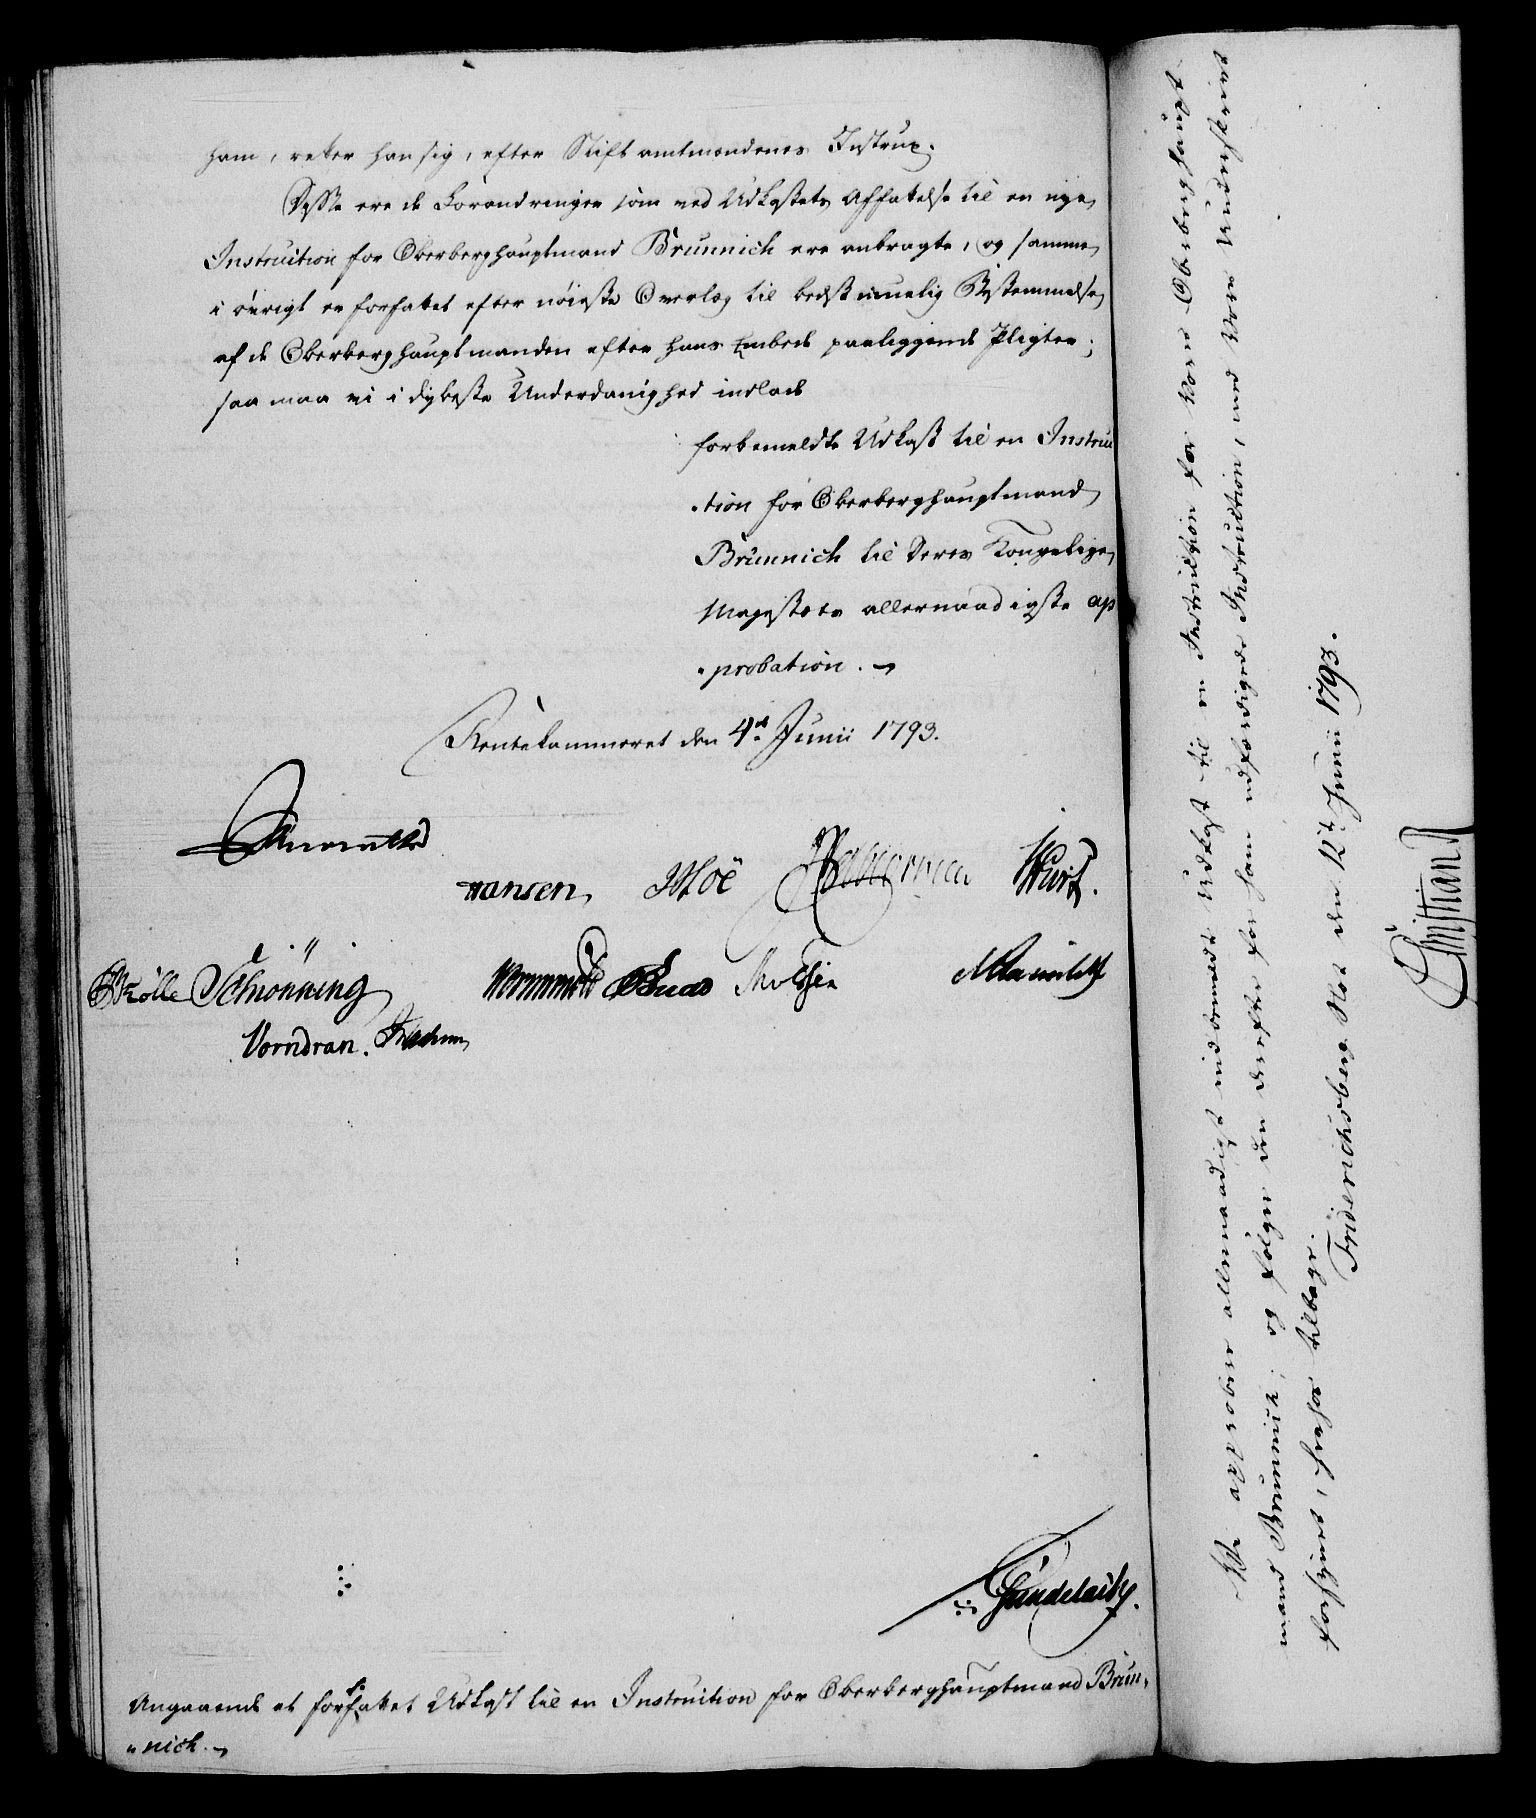 ham, retter han sig, efter Stiftamtmandens Instrux.
Disse ere de Forandringer som ved Udkastets Affattelse til en nye
Instruction for Oberberghauptmand Brünnich ere anbragte, og samme
i øvrigt er forfattet efter nøieste Overlæg til bedst muelig Bestemmelse
af de Oberberghauptmanden efter hans Embede paaliggende Pligter;
saa maa vi i dybeste Underdanighed indlade
forbemeldte Udkast til en Instruc
-tion for Oberberghauptmand
Brünnich til Deres Kongelige
Majestæts allernaadigste ap
-probation.
Rentekammeret den 4de Junii 1793.
Hansen Moë Wiur.
Schiönning
Vorndran.
Angaaende et forfattet Udkast til en Instruction for Oberberghauptmand Brün-
-nich.
Vi approbere allernaadigst indbemeldte Udkast til en Instruction for Vores Oberberghaupt-
mand Brünnich; og følger den derefter for ham udfærdigede Instruction, med Vores Underskrivt
forsynet, herhos tilbage.
Friderichsberg Slot den 12te Junii 1793.
Christian